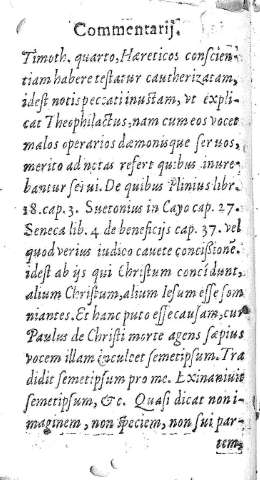 Commentarij.
Timoth. quarto, Hæreticos conscien-
tiam habere testatur cautherizatam,
idest notis peccati inustam, vt expli-
cat Theophilactus, nam cum eos vocet
malos operarios dæmonisque seruos,
merito ad notas refert quibus inure-
bantur serui. De quibus Plinius libr.
18. cap. 3. Suetonius in Cayo cap. 27.
Seneca lib. 4. de beneficijs cap. 37. vel
quod verius iudico cauete concißionẽ.
idest ab ijs qui Christum concidunt,
alium Christum, alium Iesum esse som
niantes. Et hanc puto esse causam, cur
Paulus de Christi morte agens sæpius
vocem illam inculcet semetipsum. Tra
didit semetipsum pro me. Exinaniuit
semetipsum, &c. Quasi dicat non i-
maginem, non speciem, non sui par-
tem,